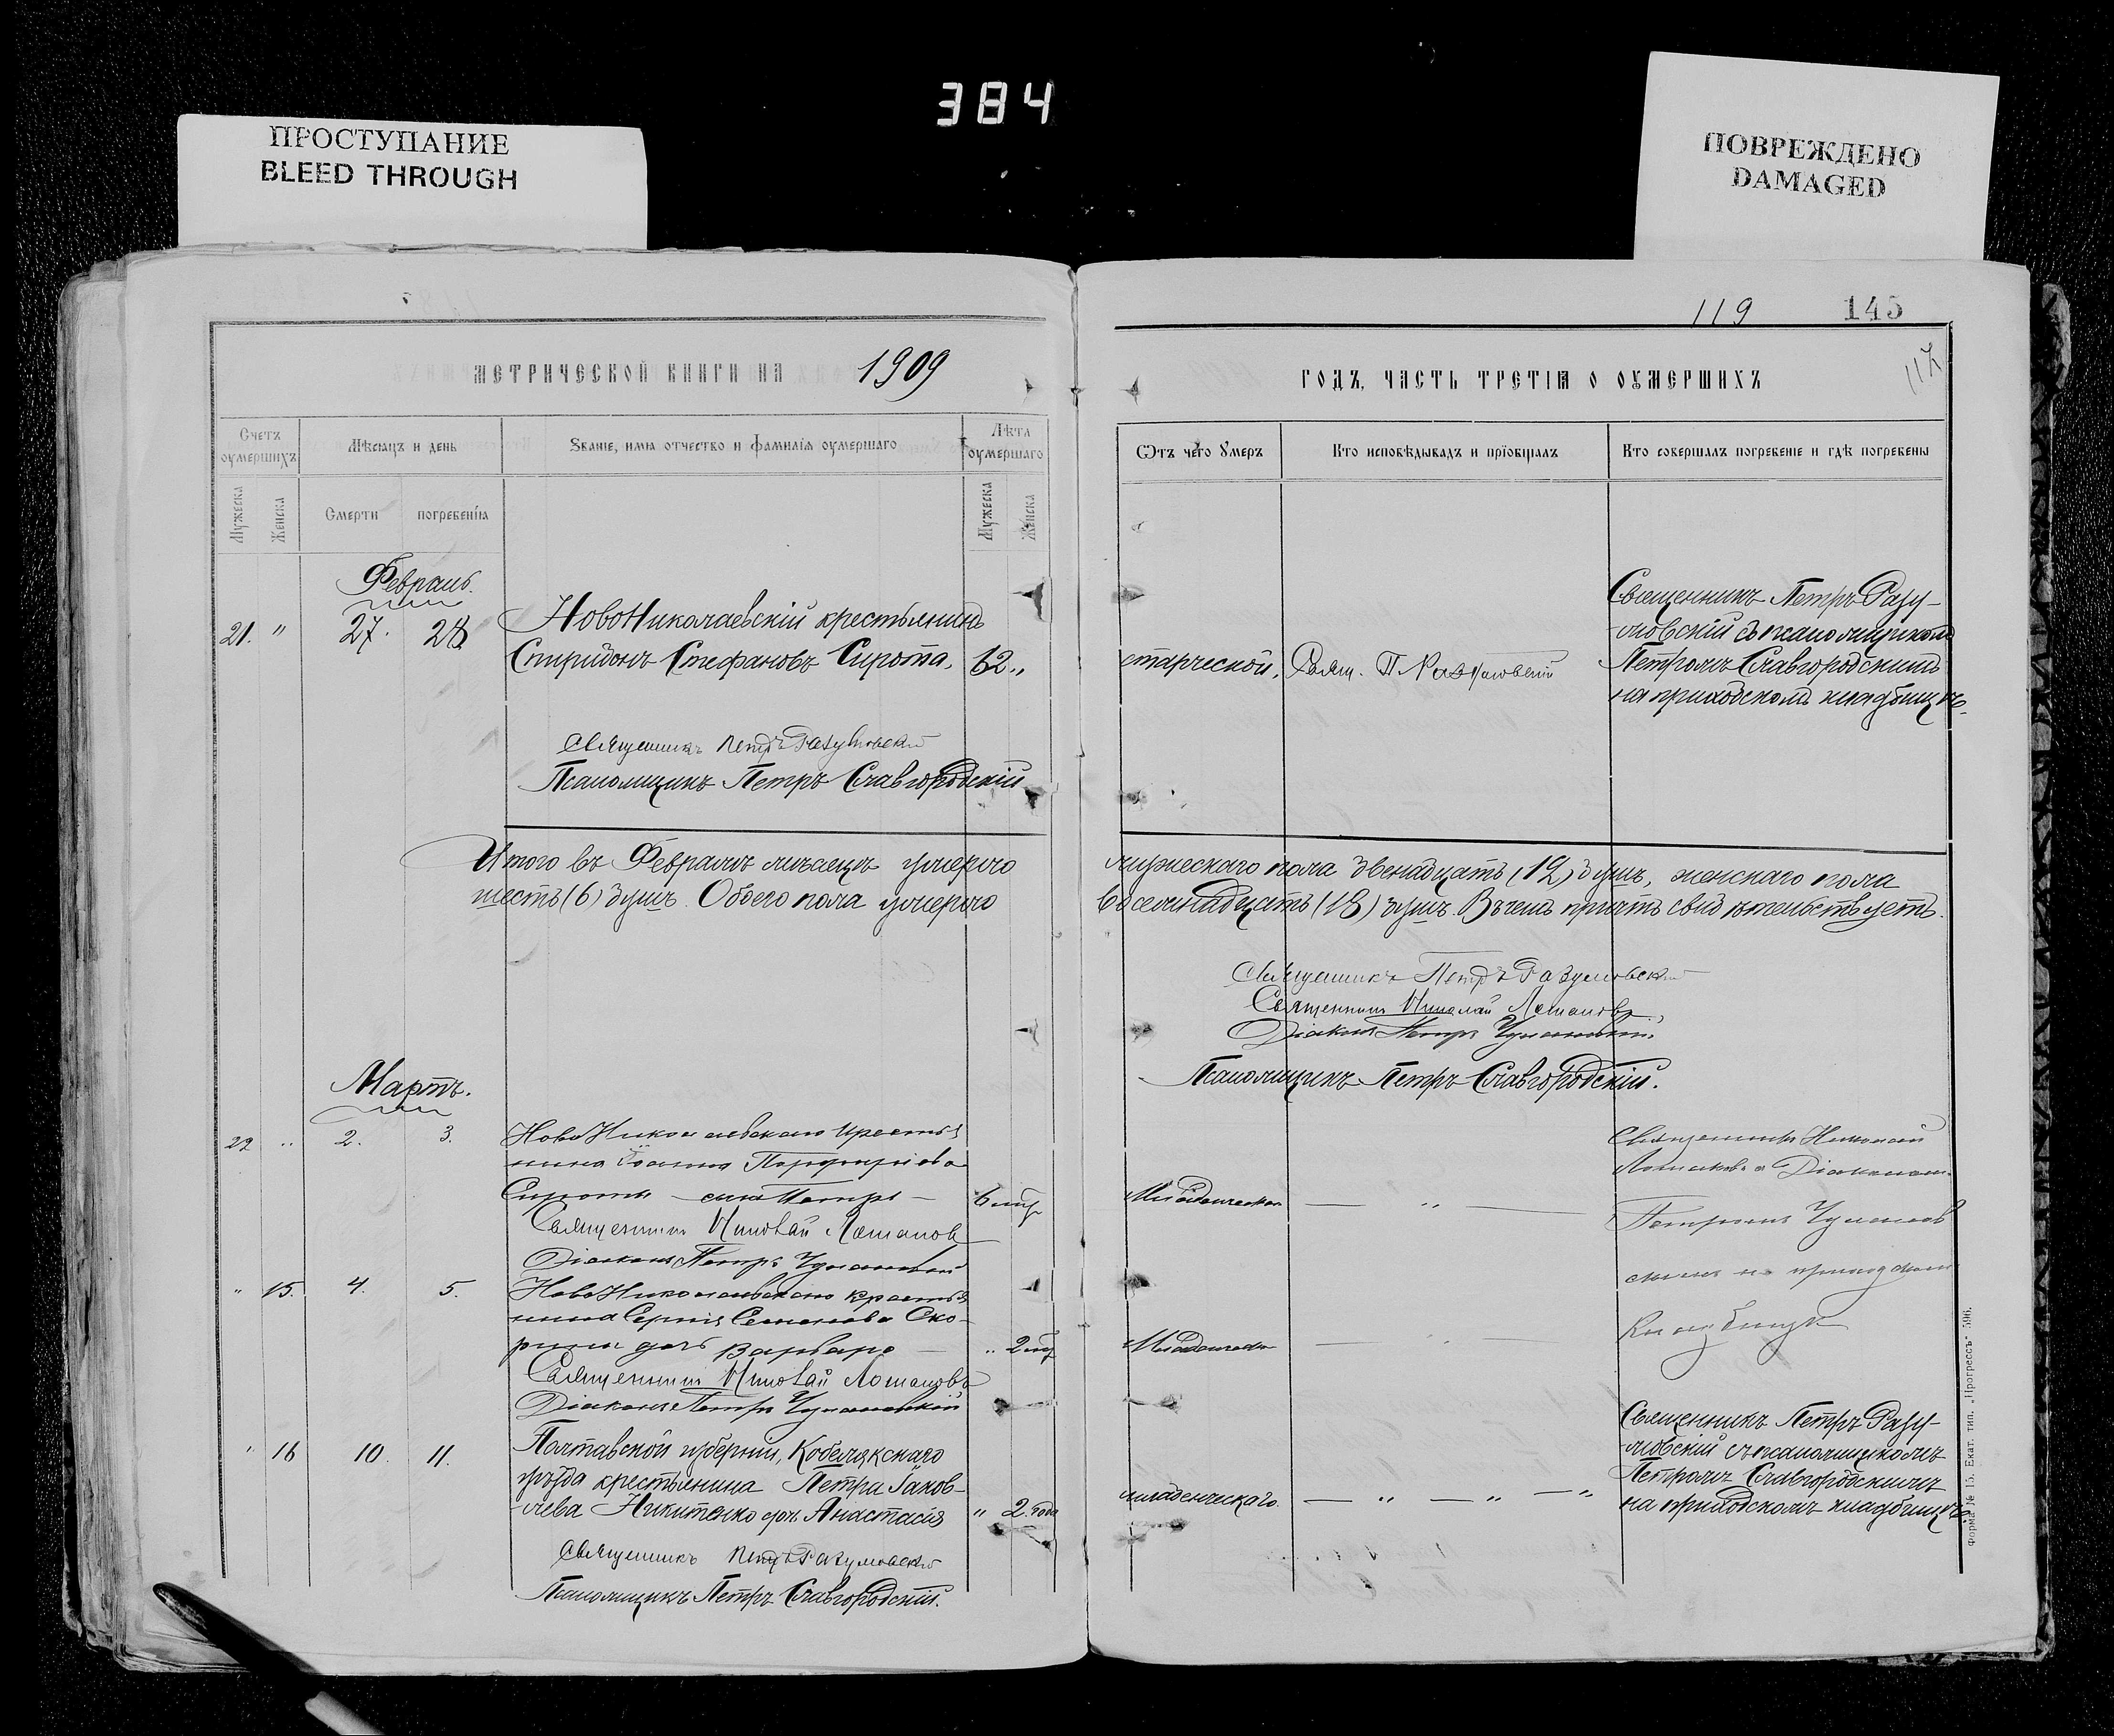 384
ПРОСТУПАНИЕ
BLEED THROUGH
ПОВРЕЖДЕНО
DAMAGED
119 145
117
МЕТРИЧЕСКОЙ КНИГИ НА 1909
Счетъ оумершихъ
Мѣсяцъ и день
Званіе, имя отчество и фамилія оумершаго
Лѣта оумершаго
Мужеска
Женска
Смерти
погребенія
Мужеска
Женска
Февраль.
21. " 27. 28
НовоНиколаевскій крестьянинъ
Спиридонъ Стефановъ Сирота, 62 "
Священникъ Петръ Разумовскій
Псаломщикъ Петръ Славгородскій
Итого въ Февралѣ мѣсяцѣ умерло
шесть (6) душъ. Обоего пола умерло
Мартъ.
22 " 2. 3.
НовоНиколаевскаго крестья
нина Іоанна Порфиріева
Сироты – сынъ Петръ –
Священникъ Николай Лошаковъ
Діаконъ Петръ
" 15. 4. 5.
НовоНиколаевскаго крестья
нина Сергія Семенова Ско-
рина дочь Варвара –
Священникъ Николай Лошаковъ
Діаконъ Петръ
" 16 10. 11.
Полтавской губерніи, Кобелякскаго
уѣзда крестьянина Петра Іаков-
лева Никитенко доч. Анастасія " 2. года
Священникъ Петръ Разумовскій
Псаломщикъ Петръ Славгородскій.
ГОДЪ, ЧАСТЬ ТРЕТІЯ О ОУМЕРШИХЪ
Ѿтъ чего Умеръ
Кто исповѣдывалъ и пріобщалъ
Кто совершалъ погребеніе и гдѣ погребены
старческой,
Свящ. П. Разумовскій
Священникъ Петръ Разу-
мовскій съ псаломщикомъ
Петромъ Славгородскимъ
на приходскомъ кладбищѣ.
мужескаго пола двенадцать (12) душъ, женскаго пола
восемнадцать (18) душъ. Въ чемъ причтъ свидѣтельствуетъ.
Священникъ Петръ Разумовскій
Священникъ Николай Лошаковъ,
Діаконъ Петръ
Псаломщикъ Петръ Славгородскій.
Младенческой — " —
Священникъ Николай
Лошаковъ с Діакономъ
Петромъ
на приходском
Кладбищѣ
младенческаго. — " — " — "
Священникъ Петръ Разу-
мовскій съ псаломщикомъ
Петромъ Славгородскимъ
на приходскомъ кладбищѣ.
Форма № 15. Екат. тип. „Прогрессъ" 596.